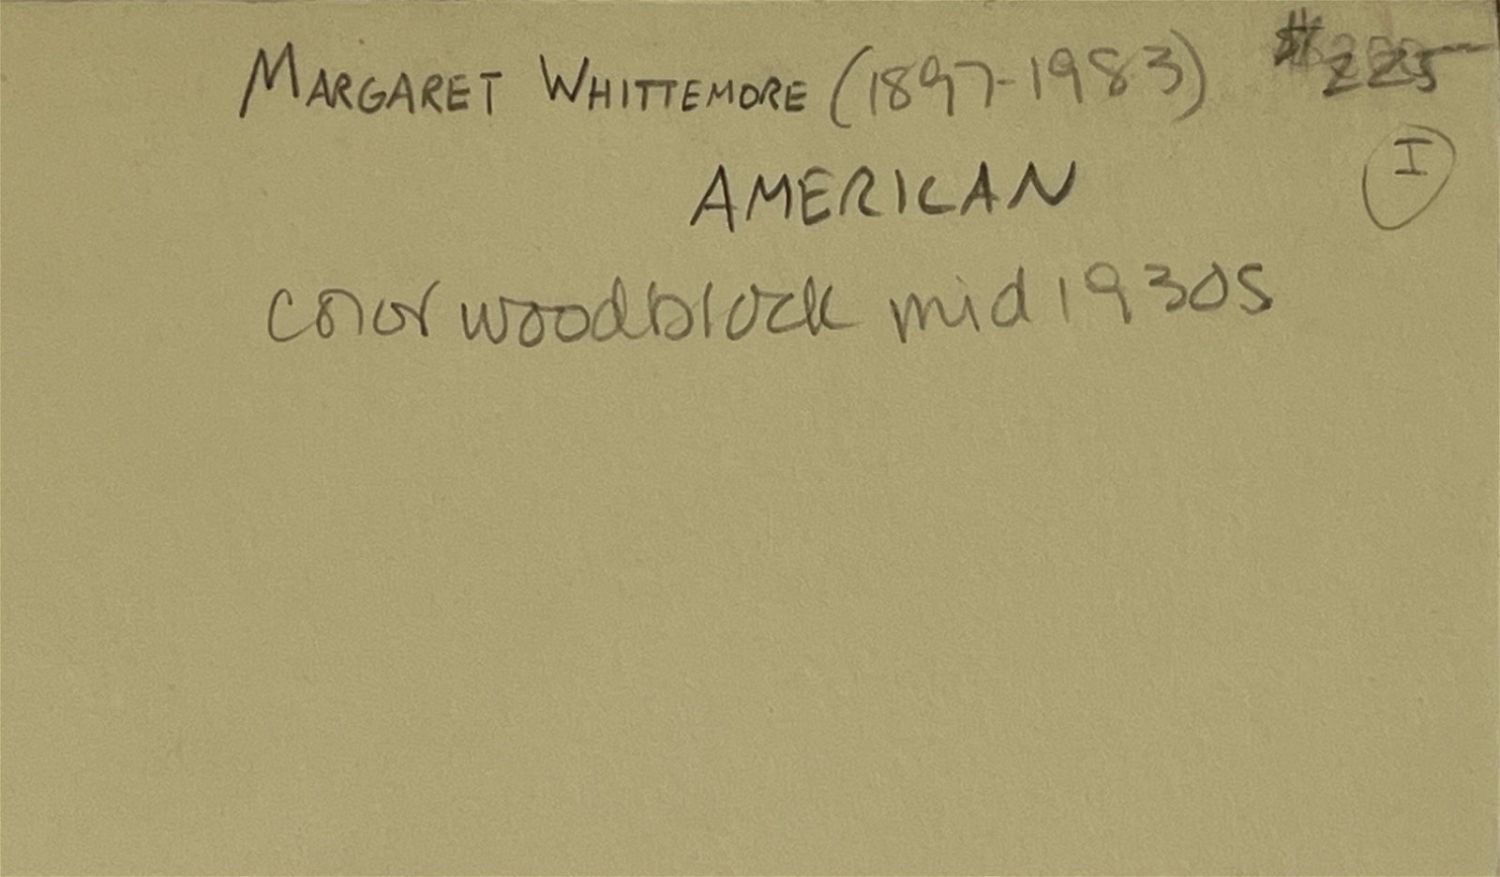 MARGARET WHITTEMORE (1897-1983) $225-
I
AMERICAN
color woodblock mid 1930s